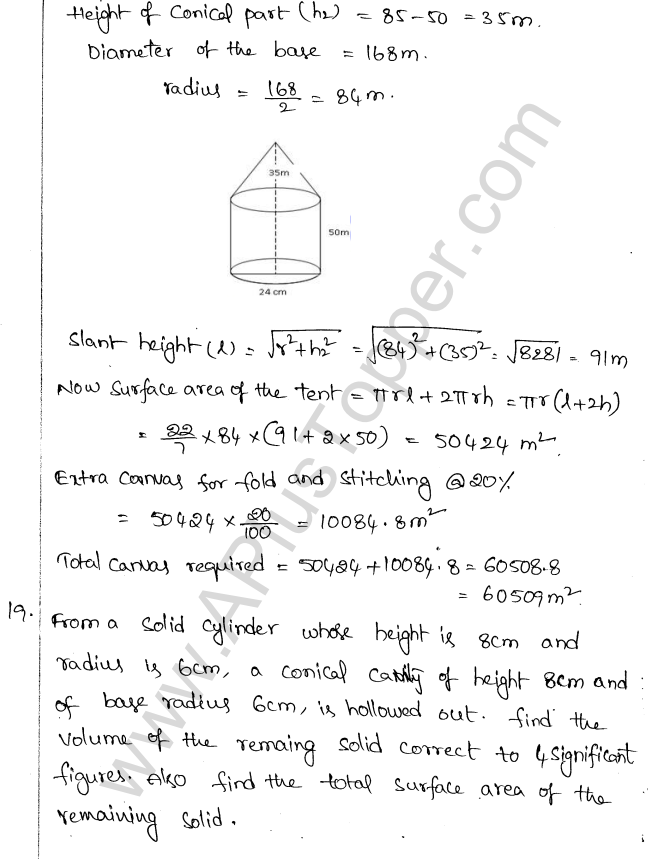 Height of Conical part (h₂) = 85-50 = 35m.
Diameter of the base = 168m.
radius = 168/2 = 84m.
35m
50m
24 cm
Slant height (l) = √r²+h₂² = √(84)²+(35)² = √8281 = 91m
Now surface area of the tent = πrl + 2πrh = πr(l+2h)
= 22/7 × 84 × (91 + 2 × 50) = 50424 m².
Extra canvas for fold and stitching @20%
= 50424 × 20/100 = 10084.8m²
Total canvas required = 50424 + 10084.8 = 60508.8
= 60509m².
19. From a solid cylinder whose height is 8cm and
radius is 6cm, a conical cavity of height 8cm and
of base radius 6cm, is hollowed out. find the
volume of the remaing solid correct to 4 significant
figures. Also find the total surface area of the
remaining solid.
www.APlusTopper.com